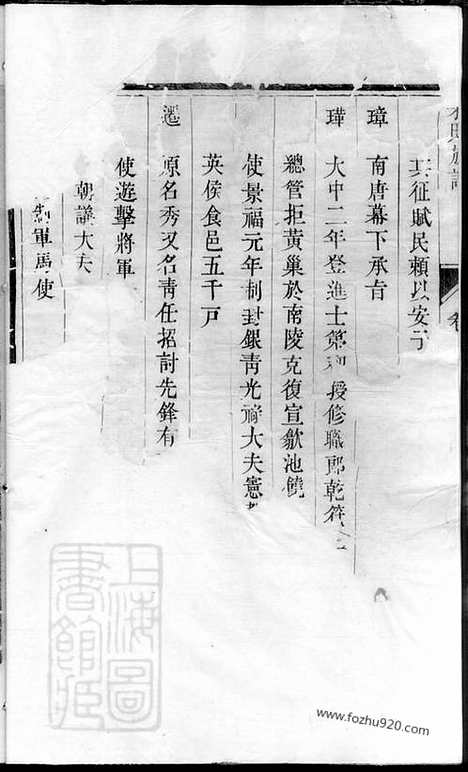 其征賦民賴以安
璋 南唐幕下承旨
璍 大中二年登進士第 授修職郎乾符
總管拒黃巢於南陵克復宣歙池饒
使景福元年制封銀青光祿大夫憲
英侯食邑五千戶
遷 原名秀又名青任招討先鋒有
使遊擊將軍
朝議大夫
軍馬使
上海圖書館藏
www.fozhu920.com